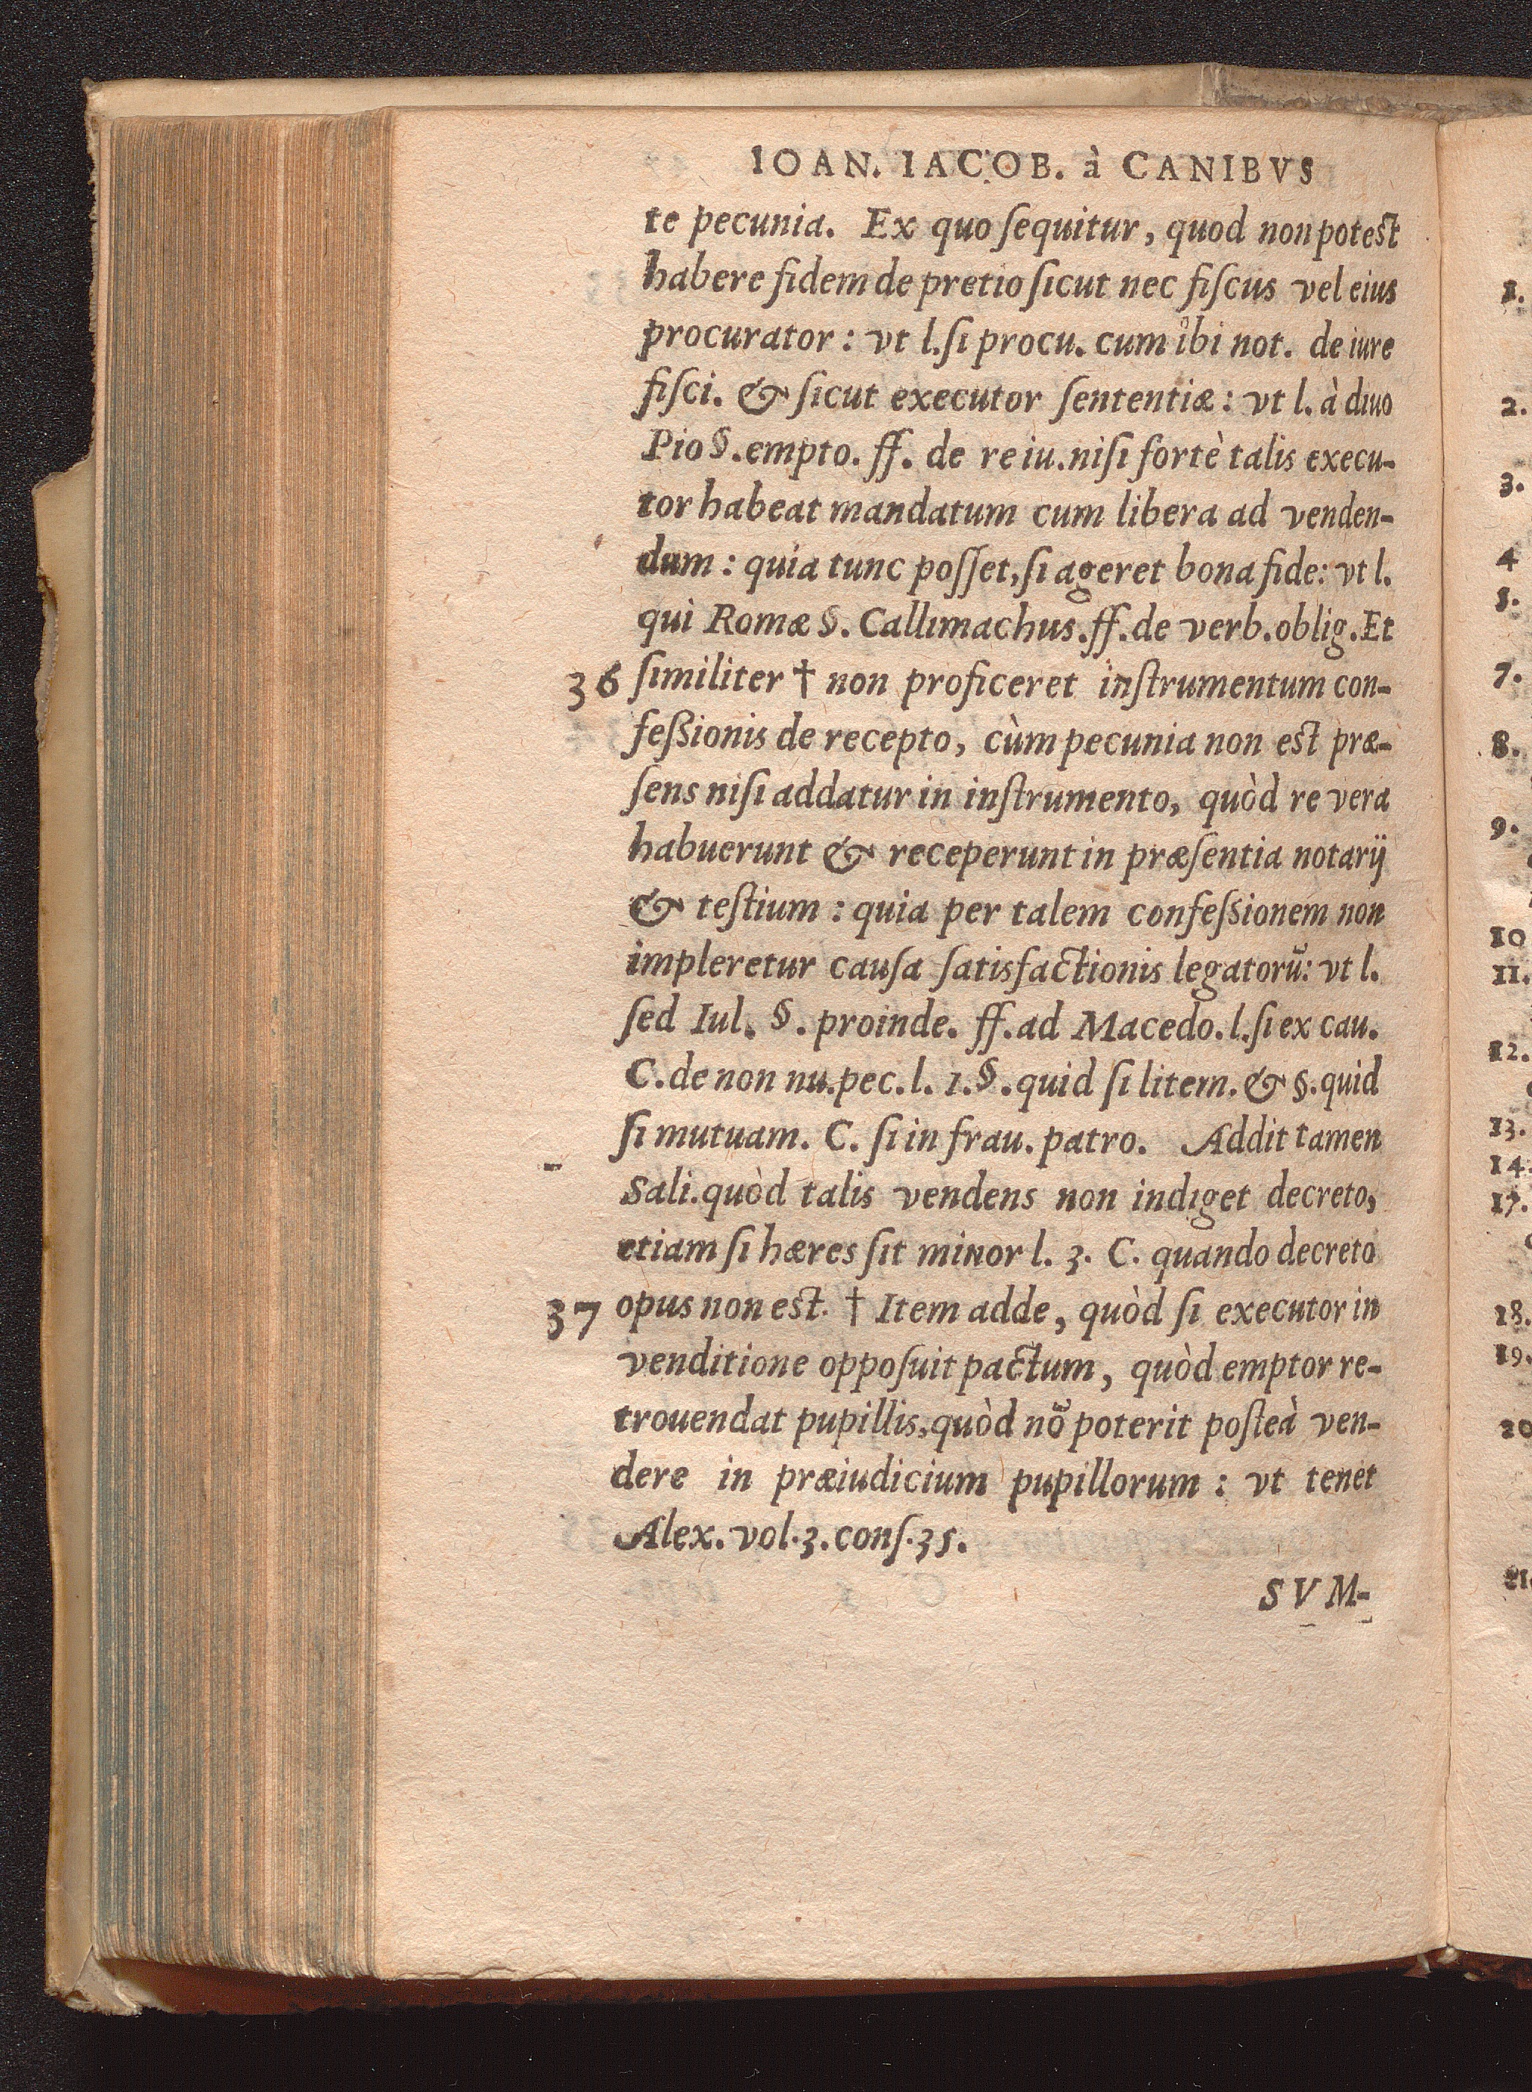 IOAN. IACOB. à CANIBVS
te pecunia. Ex quo ſequitur, quod non poteſt
habere fidem de pretio ſicut nec fiſcus vel eius
procurator: vt l. ſi procu. cum ibi not. de iure
fiſci. & ſicut executor ſententiæ: vt l. à diuo
Pio §. empto. ff. de re iu. niſi fortè talis execu-
tor habeat mandatum cum libera ad venden-
dum: quia tunc poſſet, ſi ageret bona fide: vt l.
qui Romæ §. Callimachus. ff. de verb. oblig. Et
36 ſimiliter † non proficeret inſtrumentum con-
feßionis de recepto, cùm pecunia non eſt præ-
ſens niſi addatur in inſtrumento, quòd re vera
habuerunt & receperunt in præſentia notarij
& teſtium: quia per talem confeßionem non
impleretur cauſa ſatisfactionis legatorū: vt l.
ſed Iul. §. proinde. ff. ad Macedo. l. ſi ex cau.
C. de non nu. pec. l. 1. §. quid ſi litem. & §. quid
ſi mutuam. C. ſi in frau. patro. Addit tamen
Sali. quòd talis vendens non indiget decreto,
etiam ſi hæres ſit minor l. 3. C. quando decreto
37 opus non eſt. † Item adde, quòd ſi executor in
venditione oppoſuit pactum, quòd emptor re-
trouendat pupillis, quòd nō poterit poſteà ven-
dere in præiudicium pupillorum: vt tenet
Alex. vol. 3. conſ. 35.
SVM-
1.
2.
3.
4
5.
7.
8.
9.
10
11.
12.
13.
14.
17.
18.
19.
20
21.